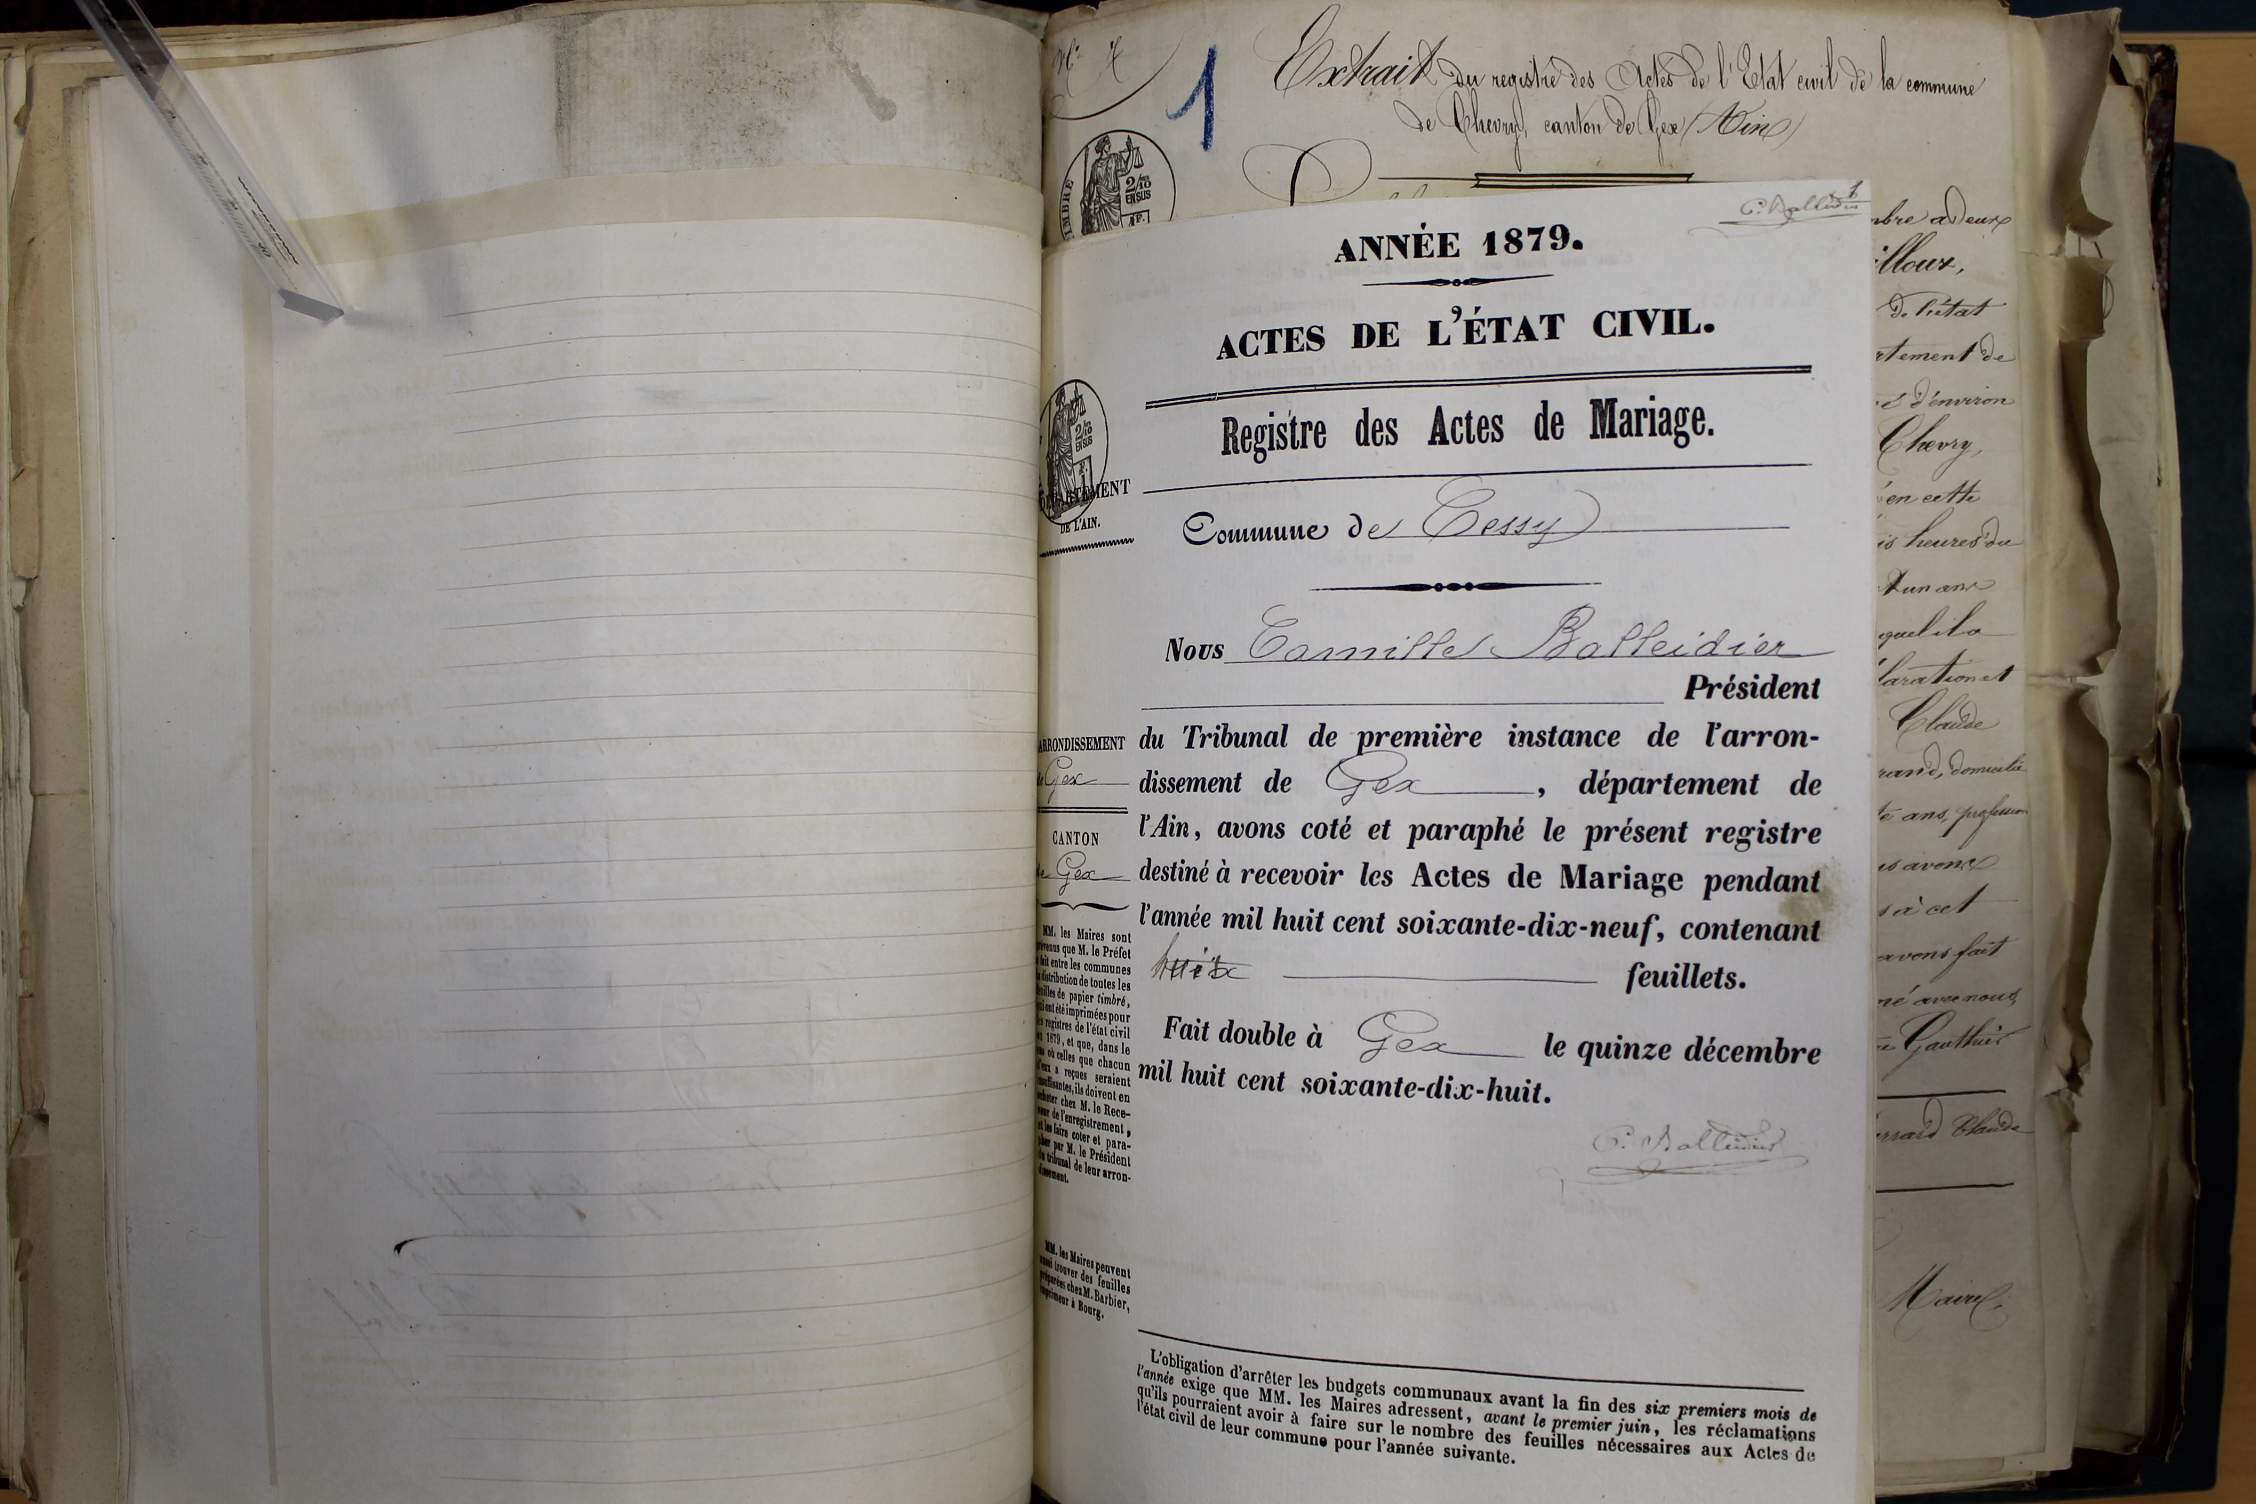 1
Extrait du registre des Actes de l'Etat civil de la commune
de Chevry, canton de Gex (Ain)
TIMBRE
2/10
EN SUS
C. Balleidier
1
ANNÉE 1879.
ACTES DE L'ÉTAT CIVIL.
Registre des Actes de Mariage.
2/10
EN SUS
DÉPARTEMENT
DE L'AIN.
Commune de Cessy
Nous Camille Balleidier
Président
du Tribunal de première instance de l'arron-
dissement de Gex, département de
l'Ain, avons coté et paraphé le présent registre
destiné à recevoir les Actes de Mariage pendant
l'année mil huit cent soixante-dix-neuf, contenant
feuillets.
Fait double à Gex le quinze décembre
mil huit cent soixante-dix-huit.
C. Balleidier
ARRONDISSEMENT
de Gex
CANTON
de Gex
MM. les Maires sont
prévenus que M. le Préfet
a fait entre les communes
la distribution de toutes les
feuilles de papier timbré,
qui ont été imprimées pour
les registres de l'état civil
en 1879, et que, dans le
cas où celles que chacun
d'eux a reçues seraient
insuffisantes, ils doivent en
acheter chez M. le Rece-
veur de l'enregistrement,
et les faire coter et para-
pher par M. le Président
du tribunal de leur arron-
dissement.
MM. les Maires peuvent
aussi trouver des feuilles
préparées chez M. Barbier,
imprimeur à Bourg.
L'obligation d'arrêter les budgets communaux avant la fin des six premiers mois de
l'année exige que MM. les Maires adressent, avant le premier juin, les réclamations
qu'ils pourraient avoir à faire sur le nombre des feuilles nécessaires aux Actes de
l'état civil de leur commune pour l'année suivante.
mbre a deux
illoux,
de l'état
rtement de
é d'environ
Chevry,
en cette
is heures du
t un ans
quel il a
laration et
Claude
rand, domicilié
te ans, profession
us avons
s à cet
avons fait
né avec nous,
Gauthier
errard Claude
Maire.